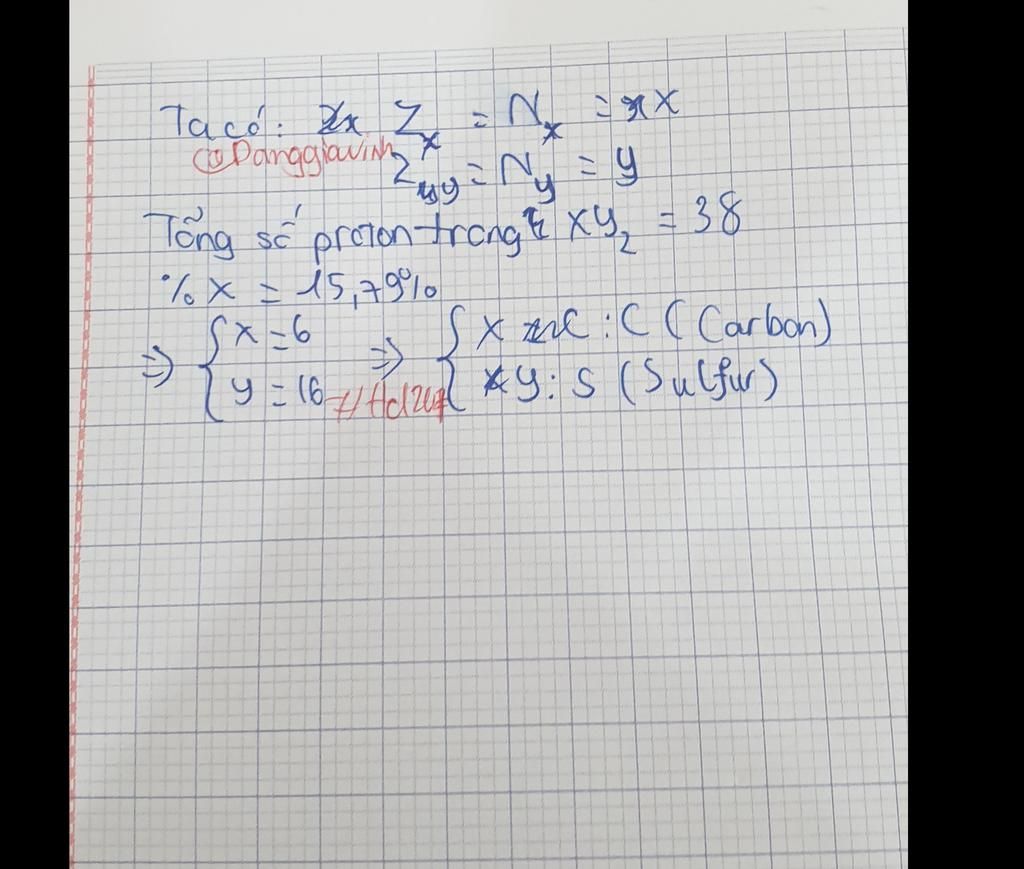 Ta có: Zx = Nx = x
@Danggiavinh
Zy = Ny = y
Tổng số proton trong XY2 = 38
% X = 15,79%
=> { x = 6 => { X : C (Carbon)
{ y = 16 { Y : S (Sulfur)